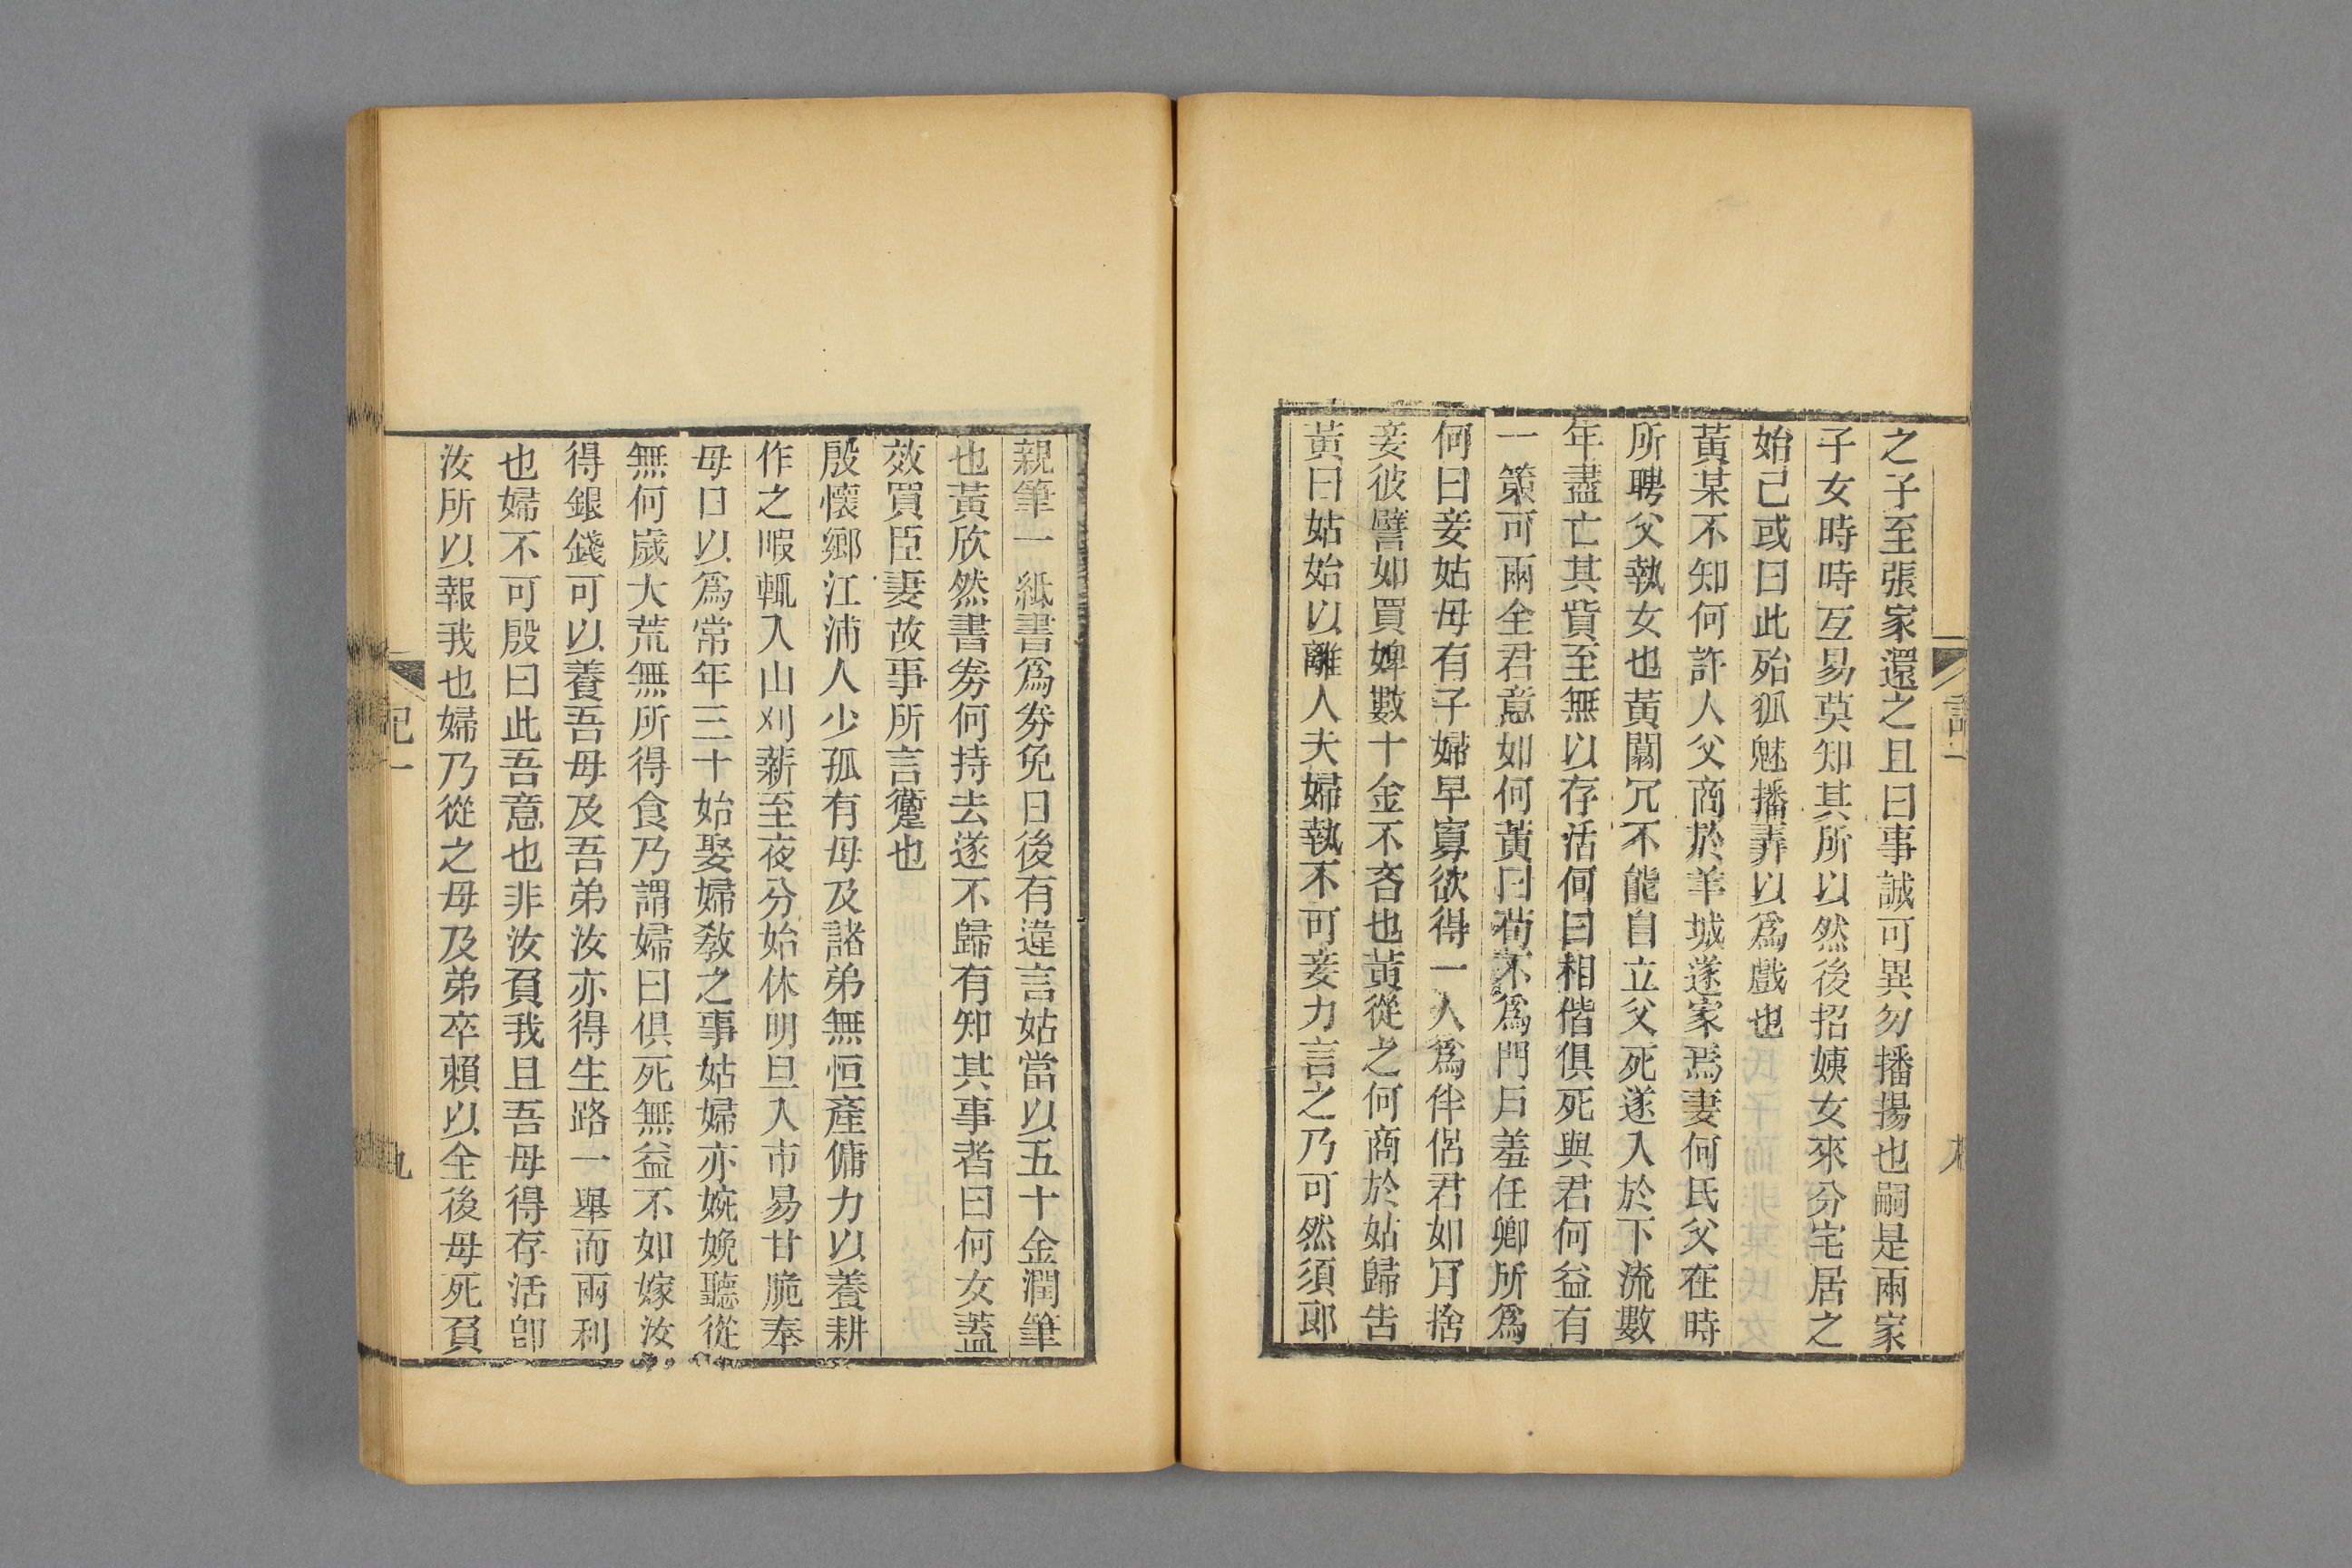 之子至張家還之且曰事誠可異勿播揚也嗣是兩家
子女時時互易莫知其所以然後招姨女來分宅居之
始己或曰此殆狐魅播弄以為戲也
黃某不知何許人父商於羊城遂家焉妻何氏父在時
所聘父執女也黃闒冗不能自立父死遂入於下流數
年盡亡其貲至無以存活何曰相偕俱死與君何益有
一策可兩全君意如何黃曰苟不為門戶羞任卿所為
何曰妾姑母有子婦早寡欲得一人為伴侶君如肎捨
妾彼譬如買婢數十金不吝也黃從之何商於姑歸告
黃曰姑始以離人夫婦執不可妾力言之乃可然須郎
親筆一紙書為劵免日後有違言姑當以五十金潤筆
也黃欣然書劵何持去遂不歸有知其事者曰何女蓋
效買臣妻故事所言讏也
殷懷鄉江浦人少孤有母及諸弟無恒產傭力以養耕
作之暇輒入山刈薪至夜分始休明旦入市易甘脆奉
母日以為常年三十始娶婦教之事姑婦亦婉娩聽從
無何歲大荒無所得食乃謂婦曰俱死無益不如嫁汝
得銀錢可以養吾母及吾弟汝亦得生路一舉而兩利
也婦不可殷曰此吾意也非汝負我且吾母得存活卽
汝所以報我也婦乃從之母及弟卒賴以全後母死負
記一
九